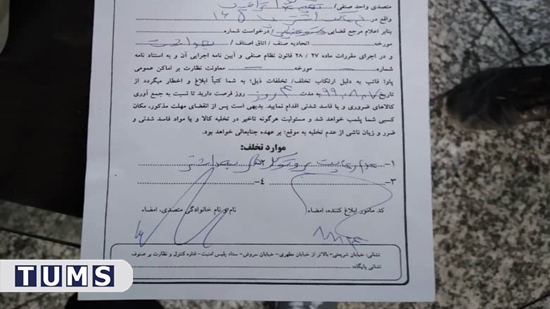 متصدی واحد صنفی/
واقع در
بنابر اعلام مرجع قضایی درخواست شماره
مورخه اتحادیه صنفی / اتاق اصناف / بهداشت
مورخه معاونت نظارت بر اماکن عمومی
و در اجرای مقررات ماده ۲۷ / ۲۸ قانون نظام صنفی و آیین نامه اجرایی آن و به استناد نامه
پاوا فاتب به دلیل ارتکاب تخلف/ تخلفات ذیل: به شما کتباً ابلاغ و اخطار میگردد از
تاریخ ۹۹،۸،۷ به مدت ۳ روز فرصت دارید تا نسبت به جمع آوری
کالاهای ضروری و یا فاسد شدنی اقدام نمایید. بدیهی است پس از انقضای مهلت مذکور، مکان
کسبی شما پلمپ خواهد شد و مسئولیت هرگونه تاخیر در تخلیه کالا و یا مواد فاسد شدنی و
ضرر و زیان ناشی از عدم تخلیه به موقع، بر عهده جنابعالی خواهد بود.
موارد تخلف:
۱- عدم رعایت پروتکل های بهداشتی
۳- ۴-
کد مامور ابلاغ کننده، امضاء نام و نام خانوادگی متصدی، امضاء
نشانی: خیابان شریعتی- بالاتر از خیابان مطهری- خیابان سروش- ستاد پلیس امنیت - اداره کنترل و نظارت بر صنوف
نشانی پایگاه:
TUMS